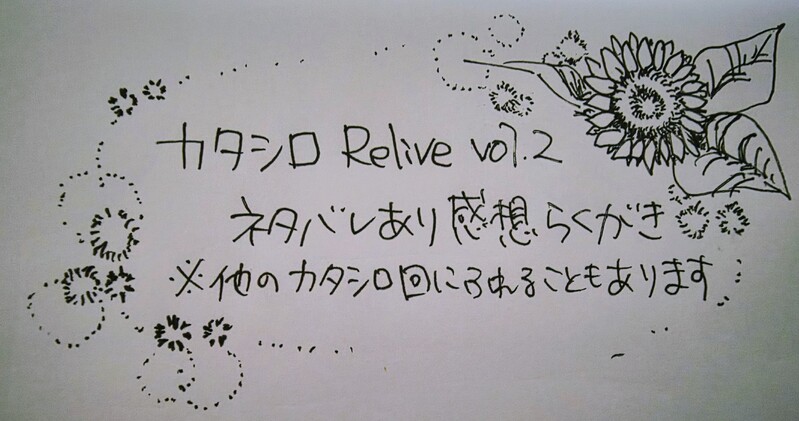 カタシロ Relive vol.2
ネタバレあり感想らくがき
※他のカタシロ回にふれることもあります